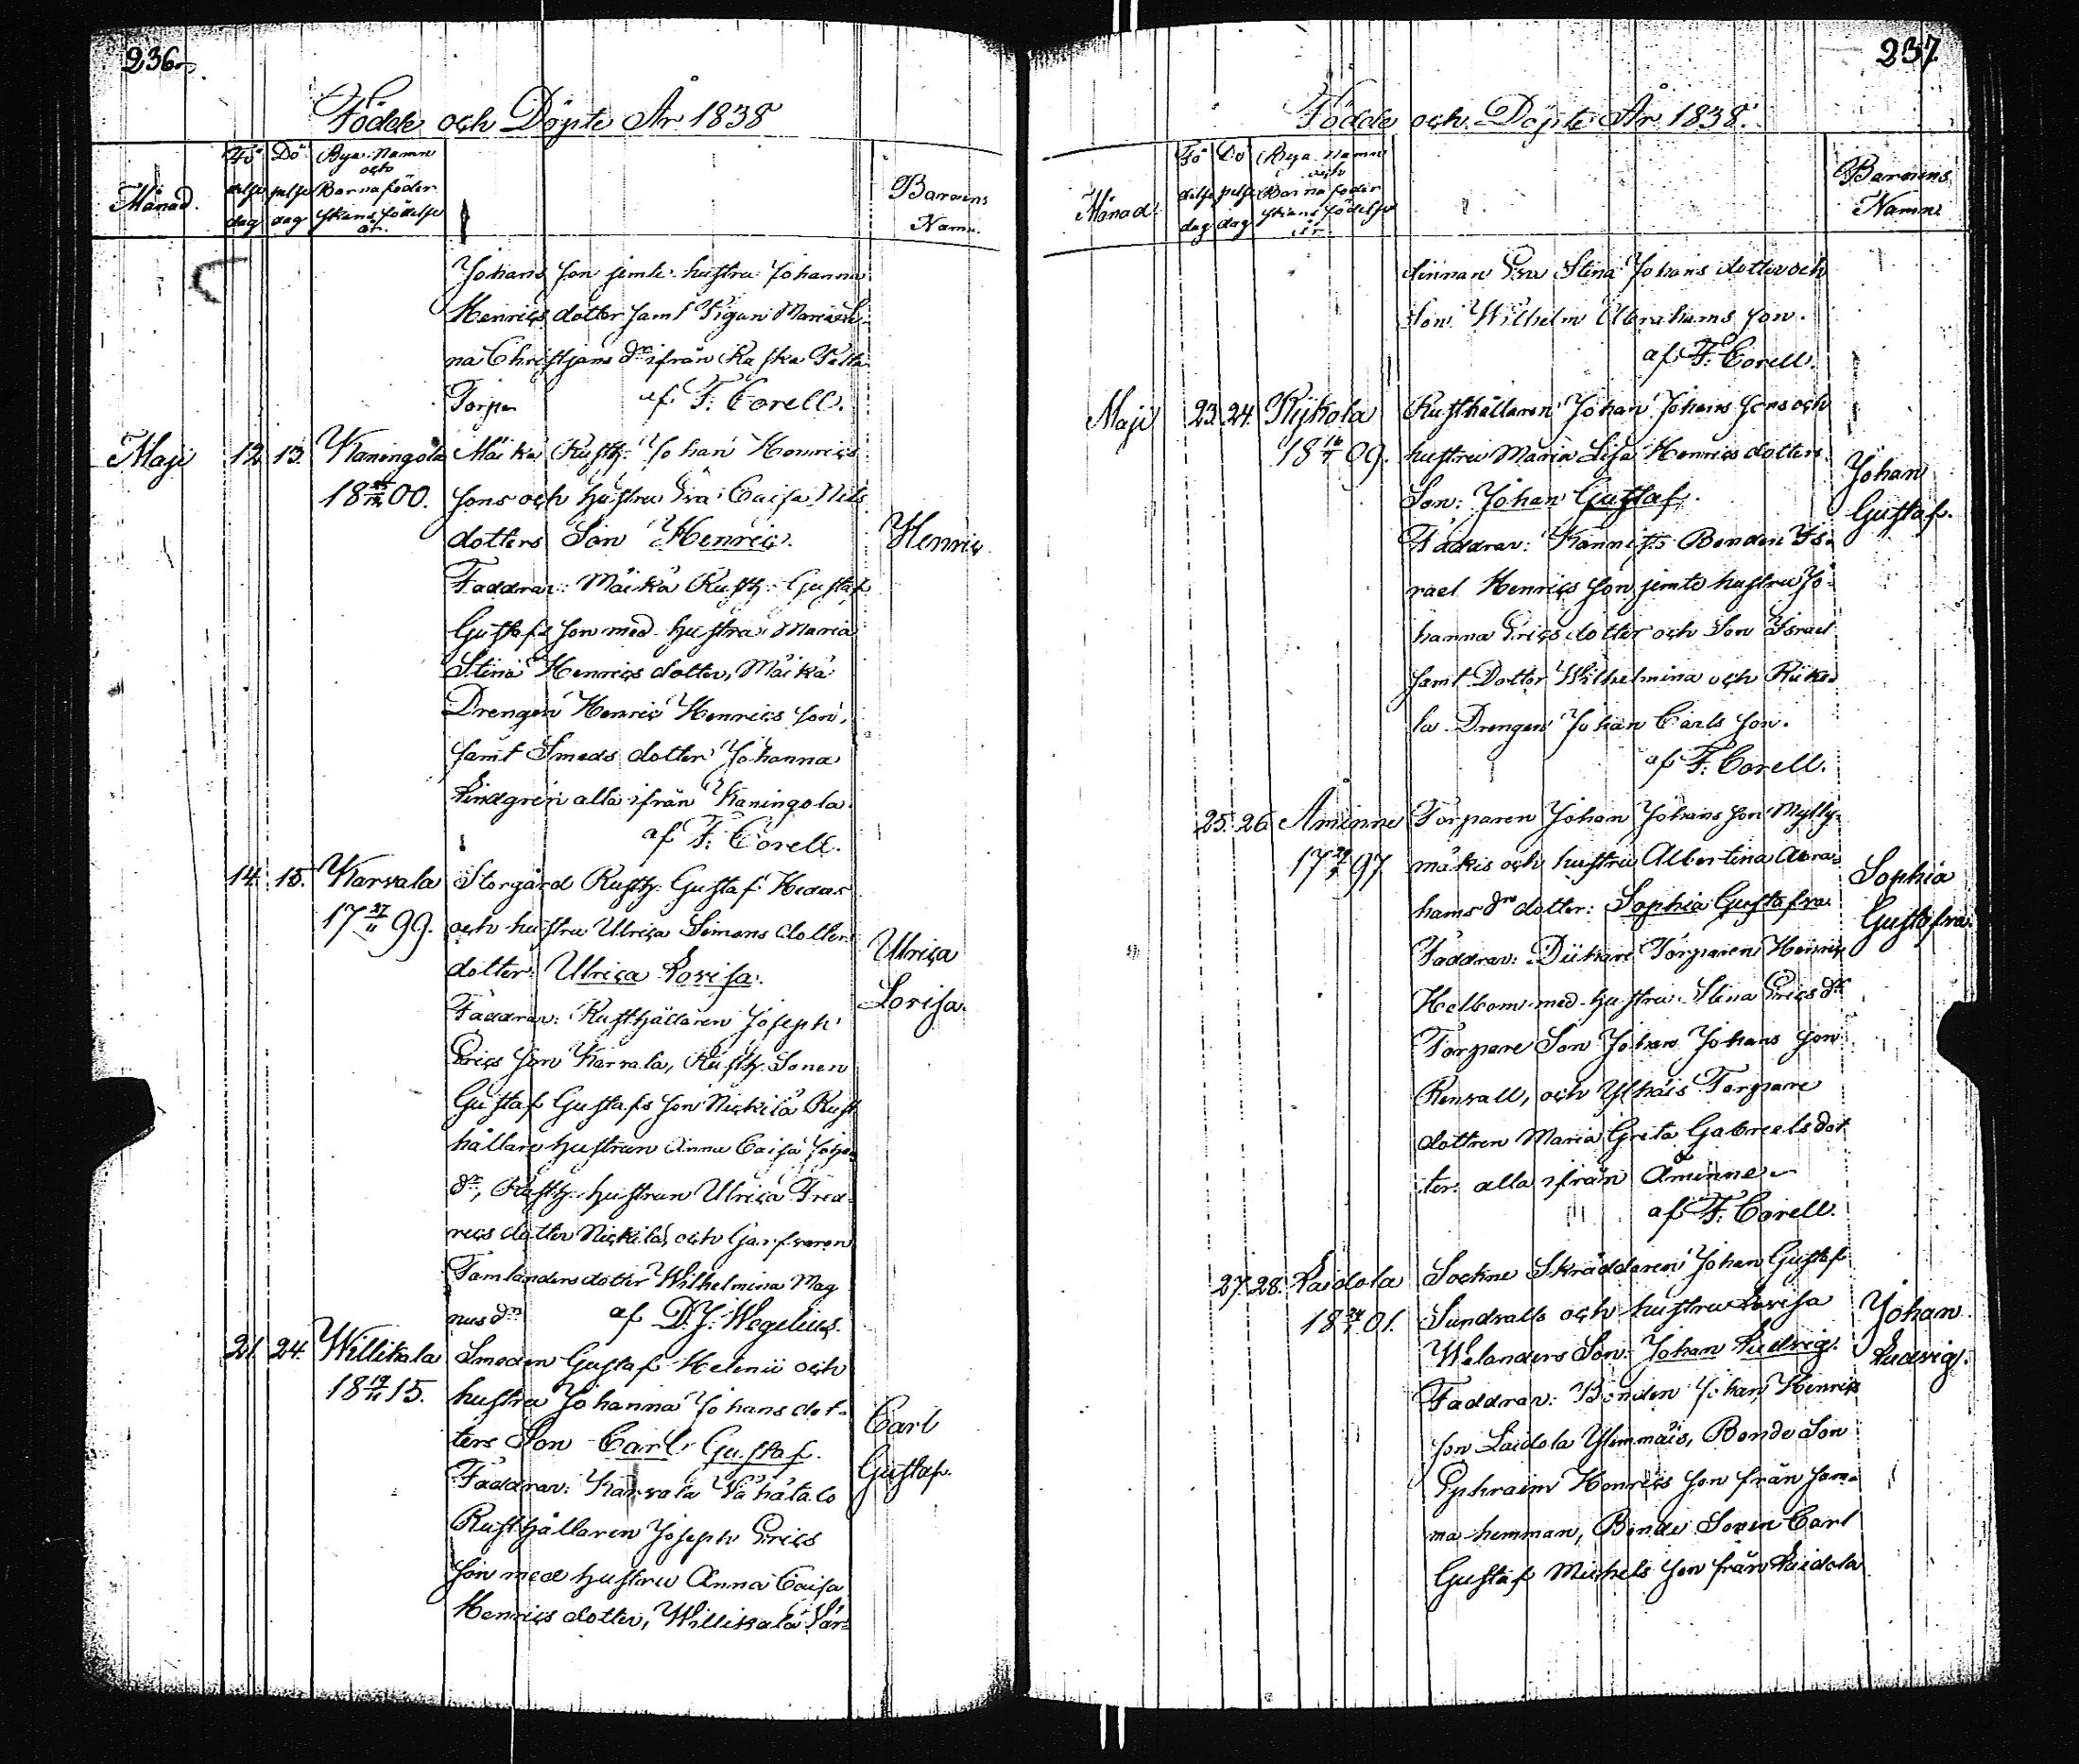 236
Födde och Döpte År 1838
Månad.
Fö
delse
dag
Dö
pelse
dag
Bya Namn
och
Barnaföder
skans födelse
år.
Barnens
Namn.
Johans son jemte hustru Johanna
Henrics dotter samt Pigan Maria Li
na Christjans dr ifrån Raska
Torpa af F. Corell.
Maji 12. 13. Kaningola Mäikä Rusth: Johan Henrics
18 00. sons och hustru Eva Caisa Nils
dotters Son Henric.
Henric
Faddrar: Mäikä Rusth: Gustaf
Gustafs son med hustru Maria
Stina Henrics dotter, Mäikä
Drengen Henric Henrics son,
samt Smeds dotter Johanna
Lindgren alla ifrån Kaningola
af F. Corell.
14. 15. Karvala Storgård Rusth: Gustaf
17 27/11 99. och hustru Ulrica Simons dotters
dotter: Ulrica Lovisa.
Ulrica
Lovisa.
Faddrar: Rusthållaren Joseph
Erics son Karvala, Rusth. Sonen
Gustaf Gustafs son Nickilä Rust
hållare hustrun Anna Caisa
dr, Rusth. hustrun Ulrica Fred
rics dotter Nickilä, och Garfvaren
Tamlanders dotter Wilhelmina Mag
nus dr af D. J. Wegelius.
21. 24. Willikala Smeden Gustaf Helenii och
18 19/11 15. hustru Johanna Johans dot-
ters Son Carl Gustaf.
Carl
Gustaf.
Faddrar: Karvala Vähätalo
Rusthållaren Joseph Erics
son med hustru Anna Caisa
Henrics dotter, Willikala Vär-
237
Födde och Döpte År 1838.
Månad
Fö
delse
dag
Dö
pelse
dag
Bya Namn
och
Barnaföder
skans födelse
år
Barnens
Namn
dinnan Eva Stina Johans dotter och
Son Wilhelm Abrahams son.
af F. Corell.
Maji 23. 24. Kijkola Rusthållaren Johan Johans sons och
18 09. hustru Maria Lisa Henrics dotters
Son: Johan Gustaf.
Johan
Gustaf.
Faddrar: Bonden Is-
rael Henrics son jemte hustru Jo-
hanna Erics dotter och Son Israel
samt Dotter Wilhelmina och
la Drengen Johan Carls son.
af F. Corell.
25. 26. Åminne Torparen Johan Johans son Mylly-
17 97. mäkis och hustru Albertina Abra-
hams drs dotter: Sophia Gustafva.
Sophia
Gustafva.
Faddrar: Torparen Henric
Helbom med hustru Stina Erics dr
Torpare Son Johan Johans son
Renvall, och Torpare
dottren Maria Greta Gabriels dot
ter alla ifrån Åminne
af F. Corell.
27. 28. Laidola Sockne Skräddaren Johan Gustaf
18 01. Sundvalls och hustru Lovisa
Welanders Son: Johan Ludvig.
Johan
Ludvig.
Faddrar: Bonden Johan Henrics
son Laidola Ylimmäis, Bonde Son
Ephraim Henrics son från sam-
ma hemman, Bonde Sonen Carl
Gustaf Michels son från Laidola